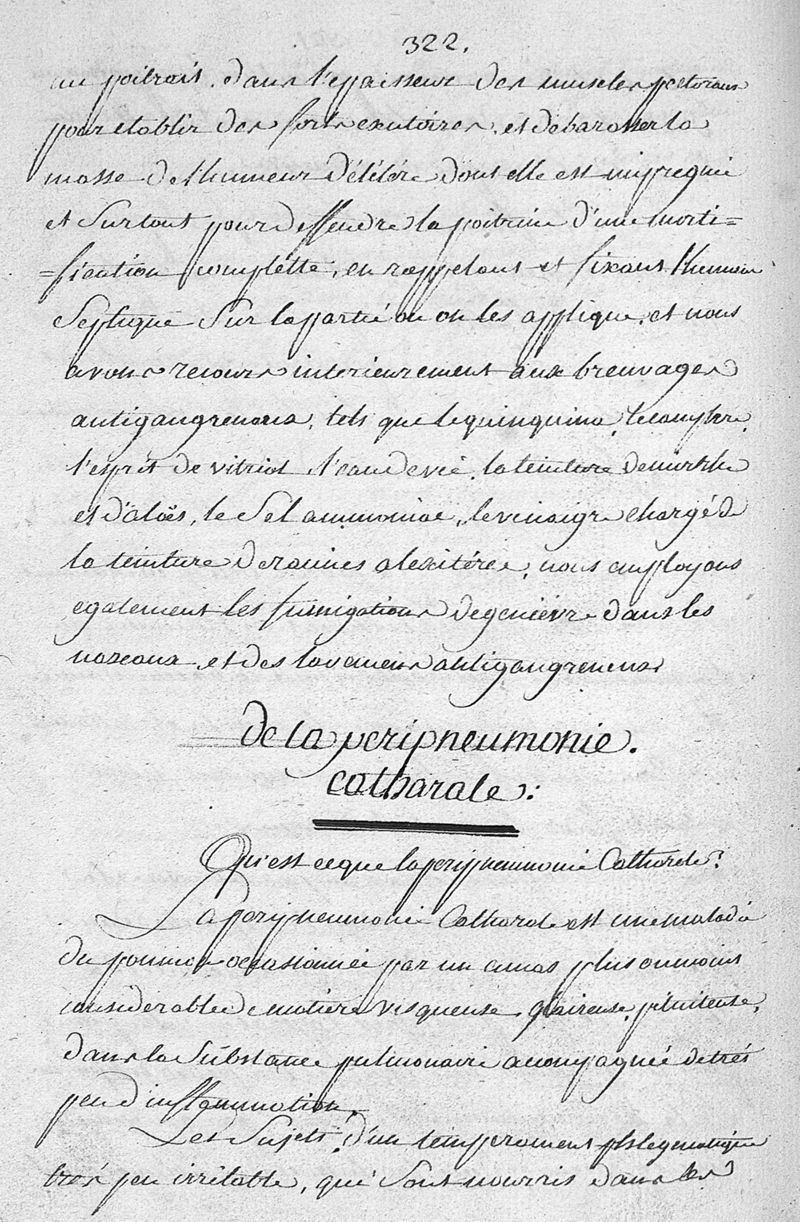 322.
au poitrail, dans l'epaisseur des muscles pectoraux
pour etablir des forts exutoires, et debarasser la
masse de l'humeur délétére dont elle est impregnée
et surtout pour deffendre la poitrine d'une morti=
=fication complétte, en rappelant et fixant l'humeur
septique sur la partie ou on les applique, et nous
avons recours interieurement aux breuvages
antigangreneux, tels que le quinquina, le camphre,
l'esprit de vitriol, l'eau de vie, la teinture de mirrhe
et d'aloës, le sel ammoniac, le vinaigre chargé de
la teinture de racines alexitére, nous employons
egalement les fumigations de geniévre dans les
naseaux, et des lavemens antigangreneux
de la peripneumonie.
catharale:
Qu'est ce que la peripneumonie Catharale?
La peripneumonie Catharale est une maladie
du poumon occasionnée par un amas plus ou moins
considerable de matiere visqueuse, glaireuse, pituiteuse,
dans la substance pulmonaire accompagnée de trés
peu d'inflammation.
Les sujets, d'un temperament phlegmatique
trés peu irritable, qui sont nourris dans les